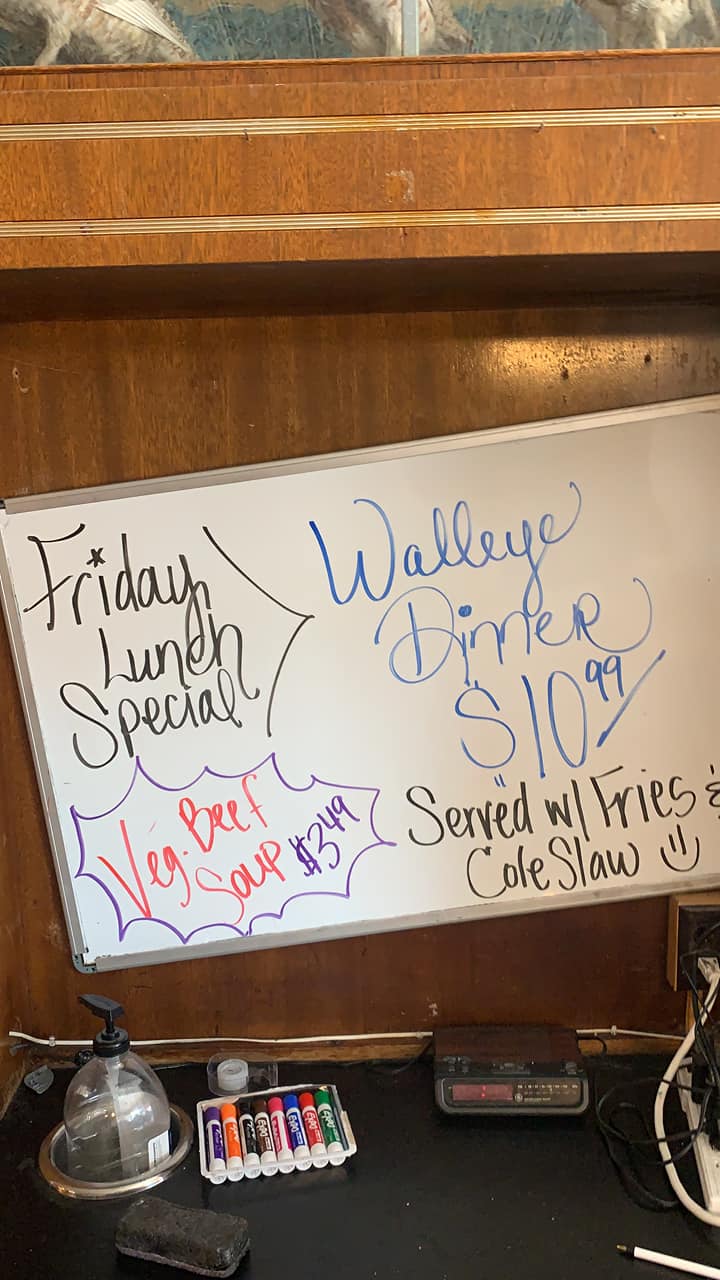 Friday
Lunch
Special
Walleye
Dinner
$10.99
Served w/ Fries &
Cole Slaw
Veg. Beef
Soup $3.49
Expo
Expo
Expo
Expo